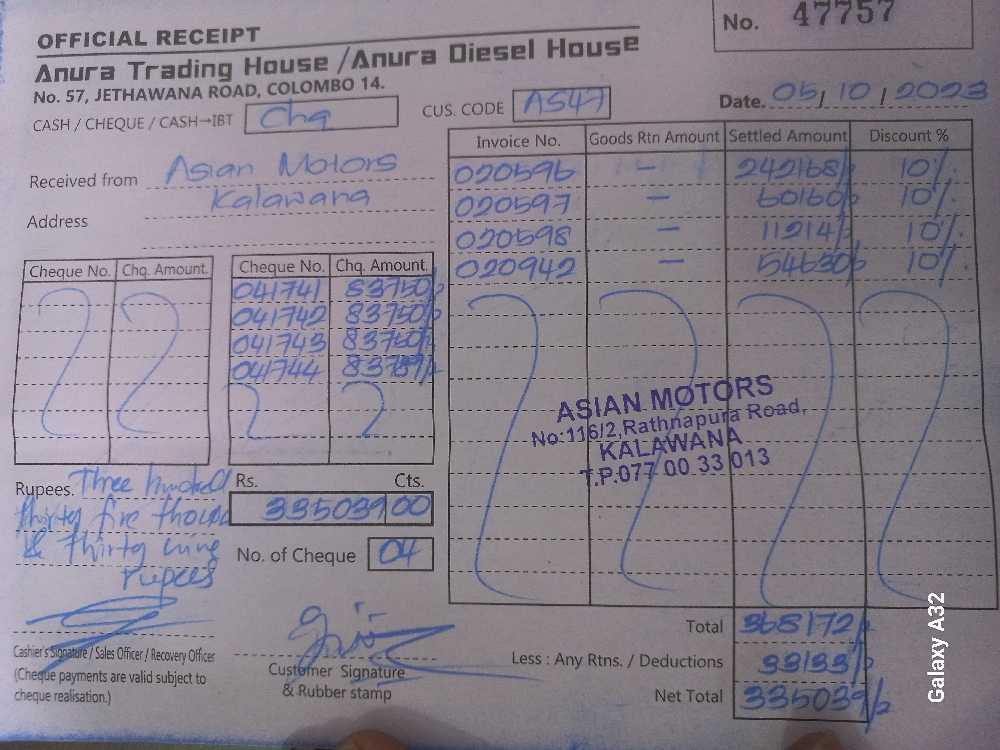 OFFICIAL RECEIPT
No. 47757
Anura Trading House /Anura Diesel House
No. 57, JETHAWANA ROAD, COLOMBO 14.
Date. 05/10/2023
CASH / CHEQUE / CASH→IBT Chq
CUS. CODE AS47
Received from Asian Motors
Address Kalawana
Invoice No. Goods Rtn Amount Settled Amount Discount %
020596 — 242168/= 10%.
020597 — 60160/= 10%.
020598 — 11214/= 10%.
020942 — 54630/= 10%.
Cheque No. Chq. Amount.
Cheque No. Chq. Amount.
041741 83750/=
041742 83750/=
041743 83750/=
041744 83789/=
ASIAN MOTORS
No:116/2,Rathnapura Road,
KALAWANA
T.P.077 00 33 013
Rupees. Three hundred
thirty five thousand
& thirty nine
rupees
Rs. Cts.
335039 00
No. of Cheque 04
Cashier's Signature / Sales Officer / Recovery Officer
(Cheque payments are valid subject to
cheque realisation.)
Customer Signature
& Rubber stamp
Total 368172/=
Less : Any Rtns. / Deductions 33133/=
Net Total 335039/=
Galaxy A32